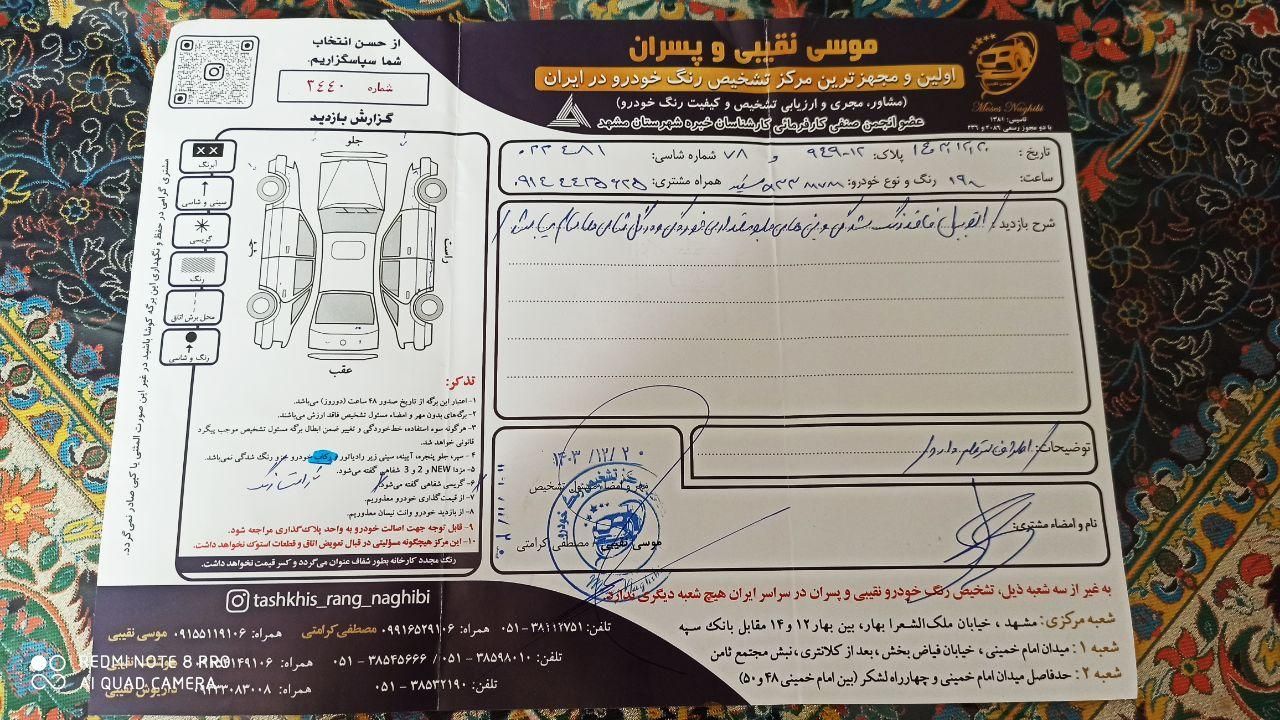 موسی نقیبی و پسران
اولین و مجهزترین مرکز تشخیص رنگ خودرو در ایران
(مشاور، مجری و ارزیابی تشخیص و کیفیت رنگ خودرو)
عضو انجمن صنفی کارفرمائی کارشناسان خبره شهرستان مشهد
Moses Naghibi
تاسیس: ۱۳۸۱
با دو مجوز رسمی ۲۰۸۶ و ۲۳۶
از حسن انتخاب
شما سپاسگزاریم.
شماره ۳۴۴۰
گزارش بازدید
تاریخ : پلاک: ۱۲-۹۴۹ و ۷۸ شماره شاسی: ۰۲۲۴۸۱
ساعت: ۱۹ رنگ و نوع خودرو: سفید mvm همراه مشتری:
شرح بازدید :
توضیحات:
نام و امضاء مشتری:
۱۴۰۳/۱۲/۲۰
مهر و امضاء مسئول تشخیص
موسی نقیبی مصطفی کرامتی
جلو
راست
چپ
عقب
آبرنگ
سینی و شاسی
گریسی
رنگ
محل برش اتاق
رنگ و شاسی
مشتری گرامی در حفظ و نگهداری این برگه کوشا باشید در غیر این صورت المثنی یا کپی صادر نمی‌گردد.
تذکر:
۱- اعتبار این برگه از تاریخ صدور ۴۸ ساعت (دوروز) می‌باشد.
۲- برگه‌های بدون مهر و امضاء مسئول تشخیص فاقد ارزش می‌باشند.
۳- هرگونه سوء استفاده، خط‌خوردگی و تغییر ضمن ابطال برگه مسئول تشخیص موجب پیگرد
قانونی خواهد شد.
۴- سپر، جلو پنجره، آیینه، سینی زیر رادیاتور رکاب خودرو جزو رنگ شدگی نمی‌باشد.
۵- مزدا NEW و 2 و 3 شفاهی گفته می‌شود.
۶- گریسی شفاهی گفته می‌شود.
۷- از قیمت‌گذاری خودرو معذوریم.
۸- از بازدید خودرو وانت نیسان معذوریم.
۹- قابل توجه جهت اصالت خودرو به واحد پلاک‌گذاری مراجعه شود.
۱۰- این مرکز هیچگونه مسؤلیتی در قبال تعویض اتاق و قطعات استوک نخواهد داشت.
رنگ مجدد کارخانه بطور شفاف عنوان می‌گردد و کسر قیمت نخواهد داشت.
به غیر از سه شعبه ذیل، تشخیص رنگ خودرو نقیبی و پسران در سراسر ایران هیچ شعبه دیگری ندارد.
شعبه مرکزی: مشهد ، خیابان ملک‌الشعرا بهار، بین بهار ۱۲ و ۱۴ مقابل بانک سپه
شعبه ۱ : میدان امام خمینی ، خیابان فیاض بخش ، بعد از کلانتری ، نبش مجتمع ثامن
شعبه ۲ : حدفاصل میدان امام خمینی و چهارراه لشکر (بین امام خمینی ۴۸ و ۵۰)
tashkhis_rang_naghibi
تلفن: ۳۸۱۱۲۷۵۱ - ۰۵۱ همراه: ۰۹۹۱۶۵۲۹۱۰۶ مصطفی کرامتی همراه: ۰۹۱۵۵۱۱۹۱۰۶ موسی نقیبی
تلفن: ۳۸۵۹۸۰۱۰ - ۰۵۱ / ۳۸۵۴۵۶۶۶ - ۰۵۱ همراه:
تلفن: ۳۸۵۳۲۱۹۰ - ۰۵۱ همراه: داریوش نقیبی
REDMI NOTE 8 PRO
AI QUAD CAMERA